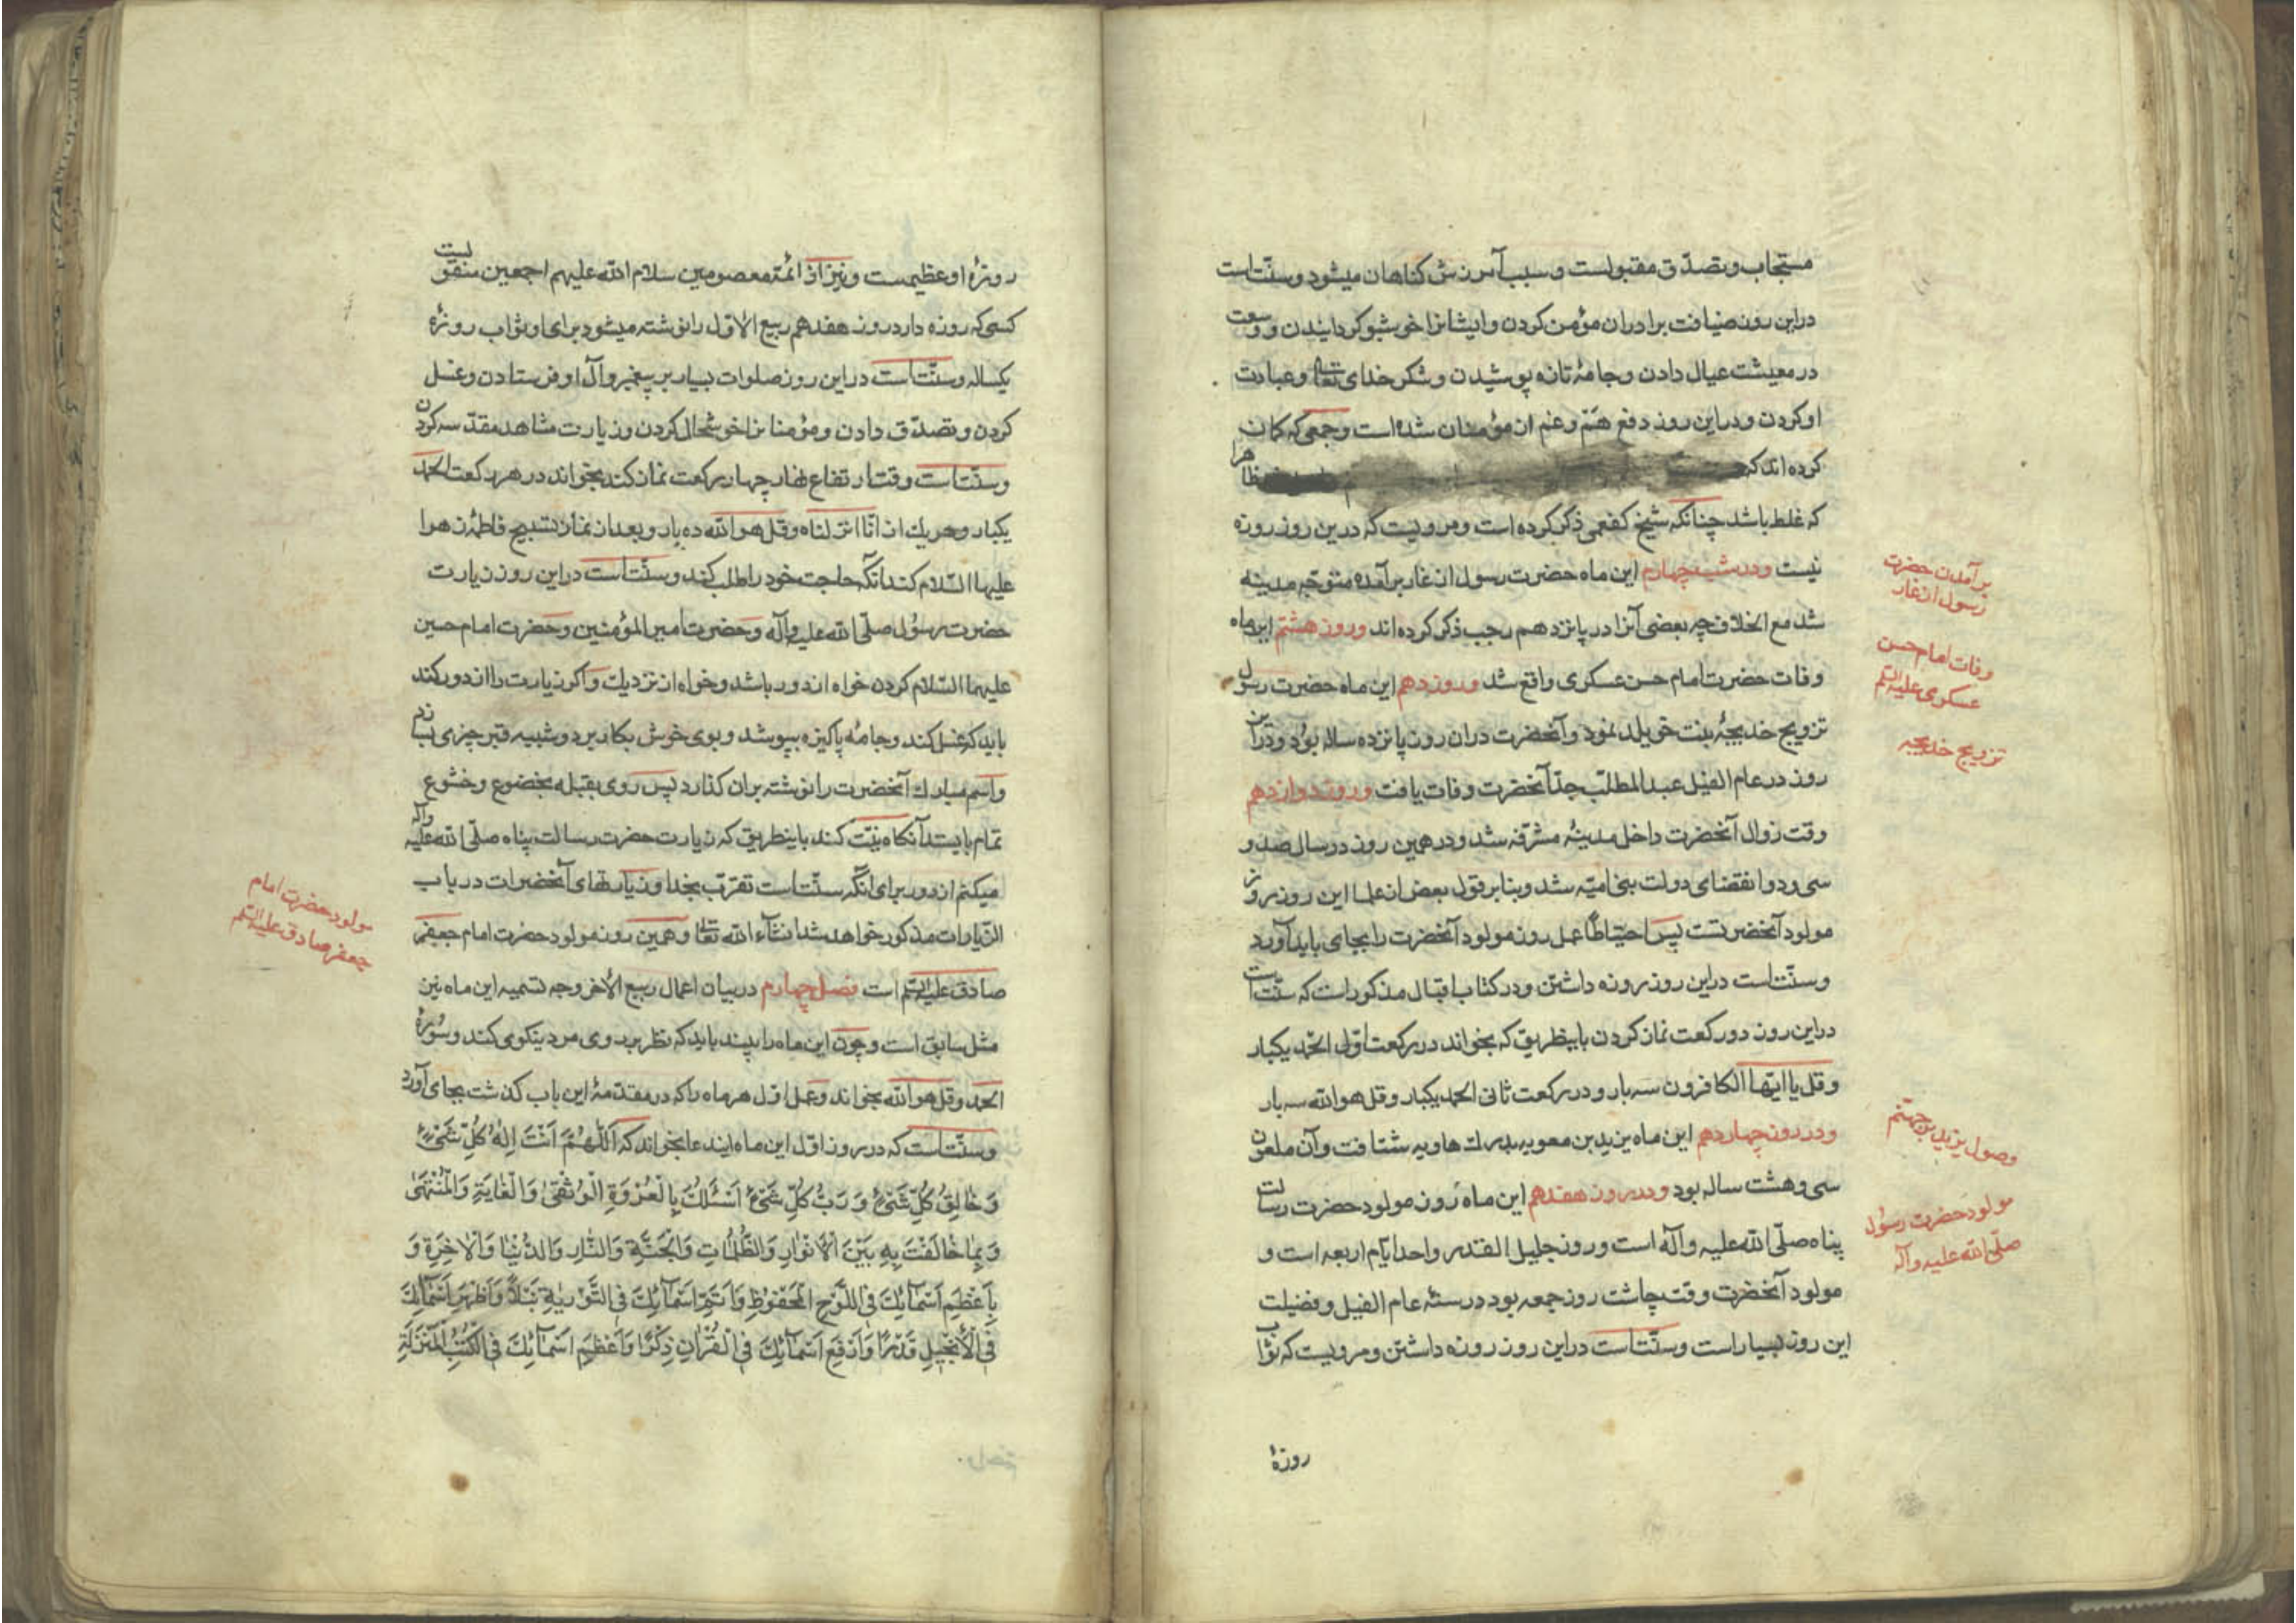 مستجاب و تصدّق مقبولست و سبب آمرزش کناهان میشود و سنّت است
دراین روز ضیافت برادران مؤمن کردن وایشانرا خوشبو کردانیدن و وسعت
در معیشت عیال دادن و جامۀ تازه پوشیدن و شکر خدای تعالی و عبادت
او کردن و دراین روز دفع همّ و غم از مؤمنان شده است و جمعی که کمان
کرده اند که ظاهرا
که غلط باشد چنانکه شیخ کفعمی ذکر کرده است و مرویست که درین روز روزه
نیست و در شب چهارم این ماه حضرت رسول از غار برآمده متوجّه مدینه
شد مع الخلاف چه بعضی آنرا در پانزدهم رجب ذکر کرده اند و روز هشتم این ماه
وفات حضرت امام حسن عسکری واقع شد و روز دهم این ماه حضرت رسول
تزویج خدیجۀ بنت خویلد نمود و آنحضرت دران روز پانزده ساله بود و در این
روز در عام الفیل عبد المطلّب جدّ آنحضرت وفات یافت و روز دوازدهم
وقت زوال آنحضرت داخل مدینۀ مشرّفه شد و در همین روز در سال صد و
سی و دو انقضای دولت بنی امیّه شد و بنابر قول بعض از علما این روز روز
مولود آنحضرتست پس احتیاطاً عمل روز مولود آنحضرت را بجای باید آورد
و سنّت است دراین روز روزه داشتن و در کتاب اقبال مذکور است که سنّت است
دراین روز دو رکعت نماز کردن باینطریق که بخواند در رکعت اوّل الحمد یکبار
و قل یا ایّها الکافرون سه بار و در رکعت ثانی الحمد یکبار و قل هو الله سه بار
و در روز چهاردهم این ماه یزید بن معویه بدرک هاویه شتافت و آن ملعون
سی و هشت ساله بود و در روز هفدهم این ماه روز مولود حضرت رسالت
پناه صلّی الله علیه وآله است و روز جلیل القدر واحد ایّام اربعه است و
مولود آنحضرت وقت چاشت روز جمعه بود در سنۀ عام الفیل و فضیلت
این روز بسیار است و سنّت است دراین روز روزه داشتن و مرویست که ثواب
روزۀ
برآمدن حضرت
رسول از غار
وفات امام حسن
عسکری علیه السّلم
تزویج خدیجه
وصول یزید بجهنّم
مولود حضرت رسول
صلّی الله علیه وآله
روزۀ او عظیمست و نیز از ائمّه معصومین سلام الله علیهم اجمعین منقولیست
کسی که روزه دارد روز هفدهم ربیع الاوّل را نوشته میشود برای او ثواب روزۀ
یکساله و سنّت است دراین روز صلوات بسیار بر پیغمبر و آل او فرستادن و غسل
کردن و تصدّق دادن و مؤمنانرا خوشحال کردن و زیارت مشاهد مقدّسه کردن
و سنّت است وقت ارتفاع نهار چهار رکعت نماز کند بخواند در هر رکعت الحمد
یکبار و هر یک از انّا انزلناه و قل هو الله ده بار و بعد از نماز تسبیح فاطمۀ زهرا
علیها السّلام کند آنکه حاجت خود را طلب کند و سنّت است دراین روز زیارت
حضرت رسول صلّی الله علیه وآله و حضرت امیر المؤمنین و حضرت امام حسین
علیهما السّلام کردن خواه از دور باشد و خواه از نزدیک و اکر زیارت را از دور کند
باید که غسل کند و جامۀ پاکیزه بپوشد و بوی خوش بکار برد و شبیه قبر چیزی بسازد
و اسم مبارک آنحضرت را نوشته بران کذارد پس روی بقبله بخضوع و خشوع
تمام بایستد آنکاه نیّت کند باینطریق که زیارت حضرت رسالت پناه صلّی الله علیه وآله
میکنم از دور برای آنکه سنّت است تقرّب بخدا و زیارتهای آنحضرات در باب
الزّیارات مذکور خواهد شد انشاء الله تعالی و همین روز مولود حضرت امام جعفر
صادق علیه السّلم است فصل چهارم در بیان اعمال ربیع الآخر وجه تسمیه این ماه نیز
مثل سابق است و چون این ماه را بیند باید که نظر بر روی مرد نیکوی کند و سورۀ
الحمد و قل هو الله بخواند و عمل اوّل هر ماه را که در مقدّمۀ این باب کذشت بجای آورد
و سنّت است که در روز اوّل این ماه این دعا بخواند که اَللّٰهُمَّ اَنْتَ اِلٰهُ کُلِّ شَیْءٍ
وَ خٰالِقُ کُلِّ شَیْءٍ وَ رَبُّ کُلِّ شَیْءٍ اَسْئَلُکَ بِالْعُرْوَةِ الْوُثْقیٰ وَالْغٰایَةِ وَالْمُنْتَهیٰ
وَ بِمٰا خٰالَفْتَ بِهِ بَیْنَ الْاَنْوٰارِ وَالظُّلُمٰاتِ وَالْجَنَّةِ وَالنّٰارِ وَالدُّنْیٰا وَالْاٰخِرَةِ وَ
بِاَعْظَمِ اَسْمٰائِکَ فِی اللَّوْحِ الْمَحْفُوظِ وَاَتَمِّ اَسْمٰائِکَ فِی التَّوْرٰیةِ نُبْلاً وَاَظْهَرِ اَسْمٰائِکَ
فِی الْاِنْجِیلِ قَدْرًا وَاَرْفَعِ اَسْمٰائِکَ فِی الْقُرْاٰنِ ذِکْرًا وَاَعْظَمِ اَسْمٰائِکَ فِی الْکُتُبِ الْمُنْزَلَةِ
مولود حضرت امام
جعفر صادق علیه السّلم